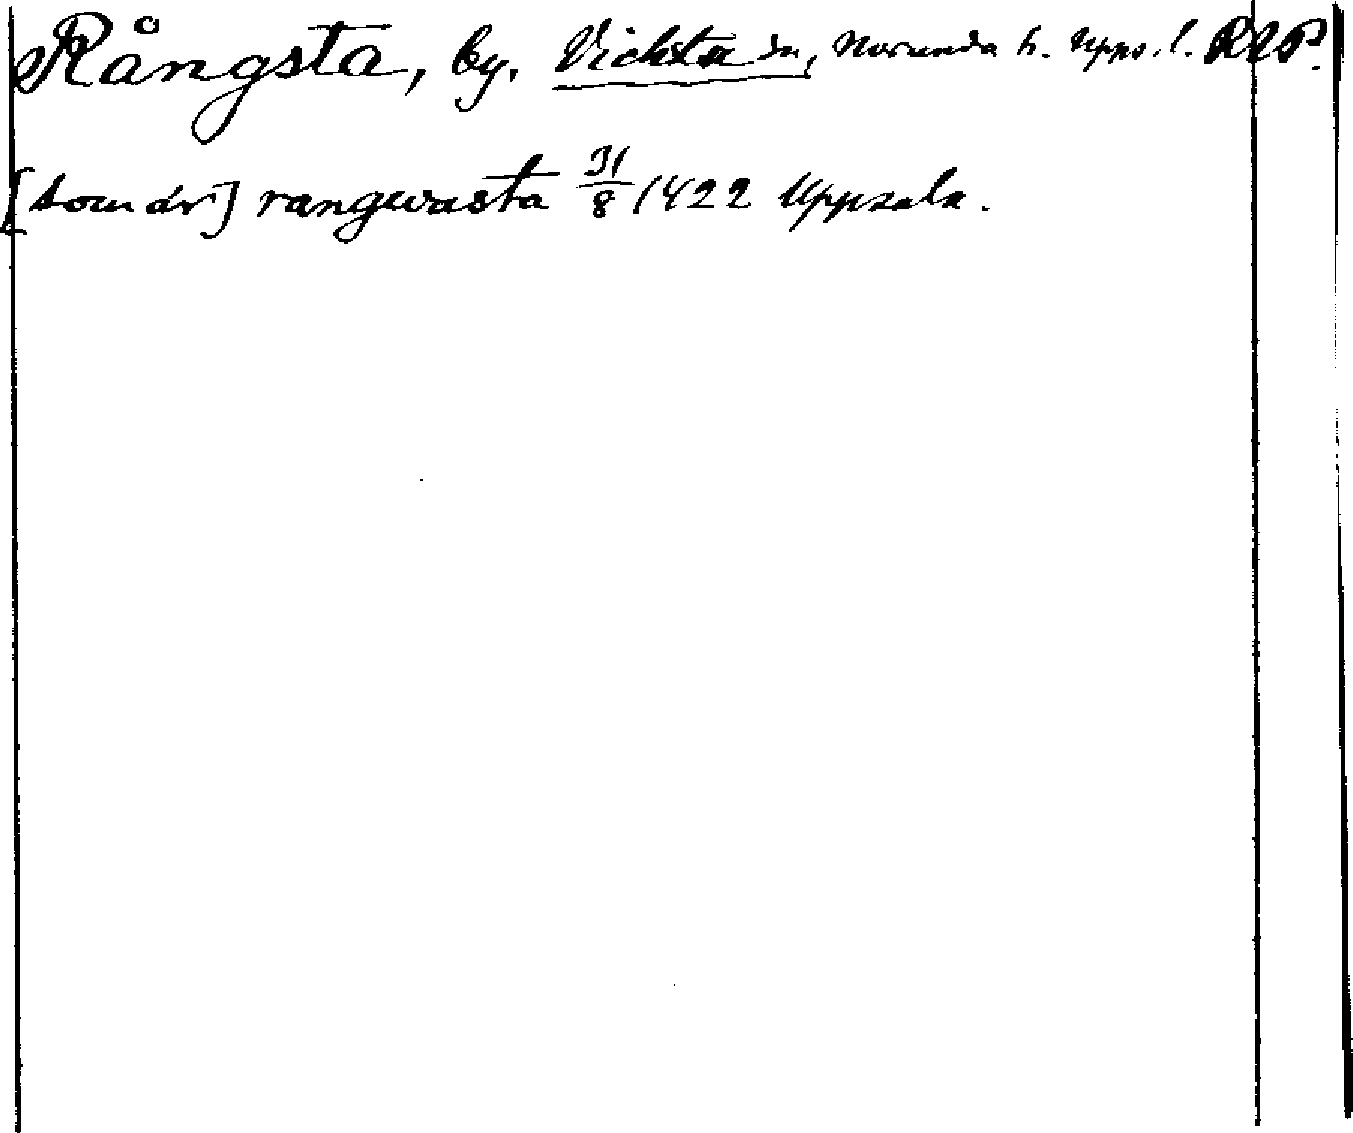 Rångsta, by. Vicksta sn, Norunda h. Upps. l. RAP.
[tomær] rangwasta 31/8 1422 Uppsala.